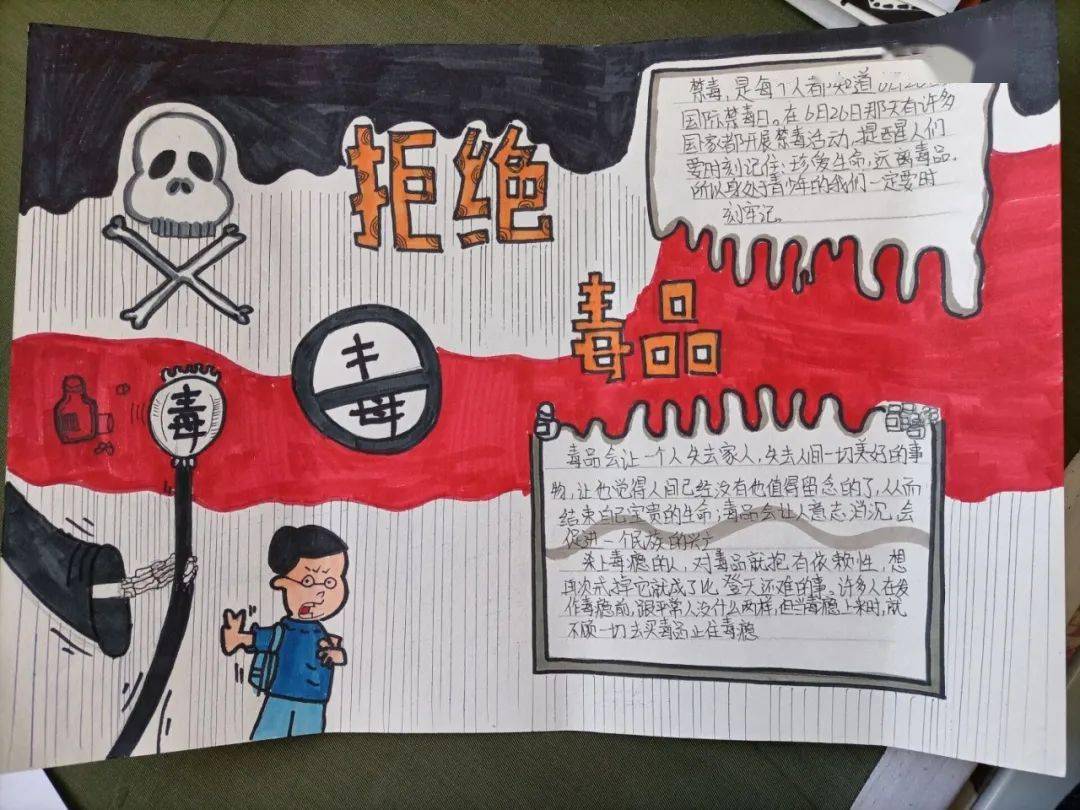 拒绝
毒品
禁毒，是每个人都知道
国际禁毒日。在6月26日那天有许多
国家都开展禁毒活动，提醒人们
要时刻记住：珍爱生命，远离毒品。
所以身处于青少年的我们一定要时
刻牢记。
毒
毒
毒品会让一个人失去家人，失去人间一切美好的事
物，让他觉得人间已经没有他值得留念的了，从而
结束自己宝贵的生命；毒品会让人意志消沉，会
促进一个民族的兴亡
染上毒瘾的人，对毒品就抱有依赖性，想
再次戒掉它就成了比登天还难的事。许多人在发
作毒瘾前，跟平常人没什么两样，但当毒瘾上来时，就
不顾一切去买毒品止住毒瘾